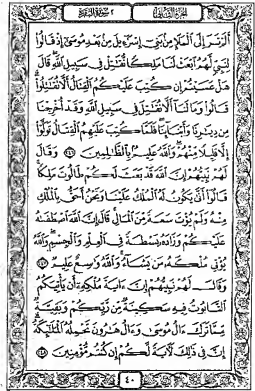 الجزء الثاني سورة البقرة
أَلَمْ تَرَ إِلَى ٱلْمَلَإِ مِنۢ بَنِىٓ إِسْرَٰٓءِيلَ مِنۢ بَعْدِ مُوسَىٰٓ إِذْ قَالُوا۟
لِنَبِىٍّ لَّهُمُ ٱبْعَثْ لَنَا مَلِكًا نُّقَٰتِلْ فِى سَبِيلِ ٱللَّهِ قَالَ
هَلْ عَسَيْتُمْ إِن كُتِبَ عَلَيْكُمُ ٱلْقِتَالُ أَلَّا تُقَٰتِلُوا۟
قَالُوا۟ وَمَا لَنَآ أَلَّا نُقَٰتِلَ فِى سَبِيلِ ٱللَّهِ وَقَدْ أُخْرِجْنَا
مِن دِيَٰرِنَا وَأَبْنَآئِنَا فَلَمَّا كُتِبَ عَلَيْهِمُ ٱلْقِتَالُ تَوَلَّوْا۟
إِلَّا قَلِيلًا مِّنْهُمْ وَٱللَّهُ عَلِيمٌۢ بِٱلظَّٰلِمِينَ ٢٤٦ وَقَالَ
لَهُمْ نَبِيُّهُمْ إِنَّ ٱللَّهَ قَدْ بَعَثَ لَكُمْ طَالُوتَ مَلِكًا
قَالُوٓا۟ أَنَّىٰ يَكُونُ لَهُ ٱلْمُلْكُ عَلَيْنَا وَنَحْنُ أَحَقُّ بِٱلْمُلْكِ
مِنْهُ وَلَمْ يُؤْتَ سَعَةً مِّنَ ٱلْمَالِ قَالَ إِنَّ ٱللَّهَ ٱصْطَفَىٰهُ
عَلَيْكُمْ وَزَادَهُۥ بَسْطَةً فِى ٱلْعِلْمِ وَٱلْجِسْمِ وَٱللَّهُ
يُؤْتِى مُلْكَهُۥ مَن يَشَآءُ وَٱللَّهُ وَٰسِعٌ عَلِيمٌ ٢٤٧
وَقَالَ لَهُمْ نَبِيُّهُمْ إِنَّ ءَايَةَ مُلْكِهِۦٓ أَن يَأْتِيَكُمُ
ٱلتَّابُوتُ فِيهِ سَكِينَةٌ مِّن رَّبِّكُمْ وَبَقِيَّةٌ
مِّمَّا تَرَكَ ءَالُ مُوسَىٰ وَءَالُ هَٰرُونَ تَحْمِلُهُ ٱلْمَلَٰٓئِكَةُ
إِنَّ فِى ذَٰلِكَ لَءَايَةً لَّكُمْ إِن كُنتُم مُّؤْمِنِينَ ٢٤٨
٤٠